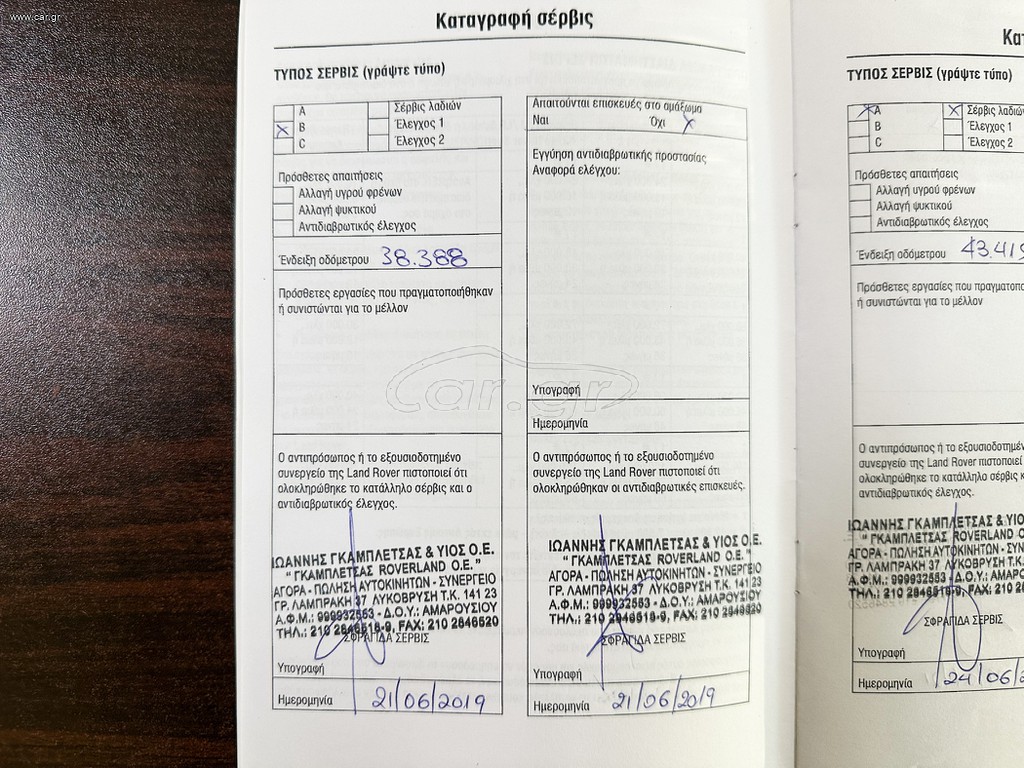 www.car.gr
Καταγραφή σέρβις
ΤΥΠΟΣ ΣΕΡΒΙΣ (γράψτε τύπο)
A
X B
C
Σέρβις λαδιών
Έλεγχος 1
Έλεγχος 2
Πρόσθετες απαιτήσεις
Αλλαγή υγρού φρένων
Αλλαγή ψυκτικού
Αντιδιαβρωτικός έλεγχος
Ένδειξη οδόμετρου 38.388
Πρόσθετες εργασίες που πραγματοποιήθηκαν
ή συνιστώνται για το μέλλον
Ο αντιπρόσωπος ή το εξουσιοδοτημένο
συνεργείο της Land Rover πιστοποιεί ότι
ολοκληρώθηκε το κατάλληλο σέρβις και ο
αντιδιαβρωτικός έλεγχος.
ΙΩΑΝΝΗΣ ΓΚΑΜΠΛΕΤΣΑΣ & ΥΙΟΣ Ο.Ε.
“ ΓΚΑΜΠΛΕΤΣΑΣ ROVERLAND Ο.Ε.”
ΑΓΟΡΑ - ΠΩΛΗΣΗ ΑΥΤΟΚΙΝΗΤΩΝ - ΣΥΝΕΡΓΕΙΟ
ΓΡ. ΛΑΜΠΡΑΚΗ 37 ΛΥΚΟΒΡΥΣΗ Τ.Κ. 141 23
Α.Φ.Μ.: 999932553 - Δ.Ο.Υ.: ΑΜΑΡΟΥΣΙΟΥ
ΤΗΛ.: 210 2846518-9, FAX: 210 2846520
ΣΦΡΑΓΙΔΑ ΣΕΡΒΙΣ
Υπογραφή
Ημερομηνία 21/06/2019
Απαιτούνται επισκευές στο αμάξωμα
Ναι Όχι X
Εγγύηση αντιδιαβρωτικής προστασίας
Αναφορά ελέγχου:
car.gr
Υπογραφή
Ημερομηνία
Ο αντιπρόσωπος ή το εξουσιοδοτημένο
συνεργείο της Land Rover πιστοποιεί ότι
ολοκληρώθηκαν οι αντιδιαβρωτικές επισκευές.
ΙΩΑΝΝΗΣ ΓΚΑΜΠΛΕΤΣΑΣ & ΥΙΟΣ Ο.Ε.
“ ΓΚΑΜΠΛΕΤΣΑΣ ROVERLAND Ο.Ε.”
ΑΓΟΡΑ - ΠΩΛΗΣΗ ΑΥΤΟΚΙΝΗΤΩΝ - ΣΥΝΕΡΓΕΙΟ
ΓΡ. ΛΑΜΠΡΑΚΗ 37 ΛΥΚΟΒΡΥΣΗ Τ.Κ. 141 23
Α.Φ.Μ.: 999932553 - Δ.Ο.Υ.: ΑΜΑΡΟΥΣΙΟΥ
ΤΗΛ.: 210 2846518-9, FAX: 210 2846520
ΣΦΡΑΓΙΔΑ ΣΕΡΒΙΣ
Υπογραφή
Ημερομηνία 21/06/2019
ΤΥΠΟΣ ΣΕΡΒΙΣ (γράψτε τύπο)
X A
B
C
X Σέρβις λαδιών
Έλεγχος 1
Έλεγχος 2
Πρόσθετες απαιτήσεις
Αλλαγή υγρού φρένων
Αλλαγή ψυκτικού
Αντιδιαβρωτικός έλεγχος
Ένδειξη οδόμετρου 43.419
Πρόσθετες εργασίες που πραγματοποιήθ
ή συνιστώνται για το μέλλον
Ο αντιπρόσωπος ή το εξουσιοδοτημένο
συνεργείο της Land Rover πιστοποιεί
ολοκληρώθηκε το κατάλληλο σέρβις κ
αντιδιαβρωτικός έλεγχος.
ΙΩΑΝΝΗΣ ΓΚΑΜΠΛΕΤΣΑΣ & ΥΙΟΣ Ο
“ ΓΚΑΜΠΛΕΤΣΑΣ ROVERLAND Ο.Ε
ΑΓΟΡΑ - ΠΩΛΗΣΗ ΑΥΤΟΚΙΝΗΤΩΝ - ΣΥΝ
ΓΡ. ΛΑΜΠΡΑΚΗ 37 ΛΥΚΟΒΡΥΣΗ Τ.Κ.
Α.Φ.Μ.: 999932553 - Δ.Ο.Υ.: ΑΜΑΡΟ
ΤΗΛ.: 210 2846518-9, FAX: 210
ΣΦΡΑΓΙΔΑ ΣΕΡΒΙΣ
Υπογραφή
Ημερομηνία 24/06/2